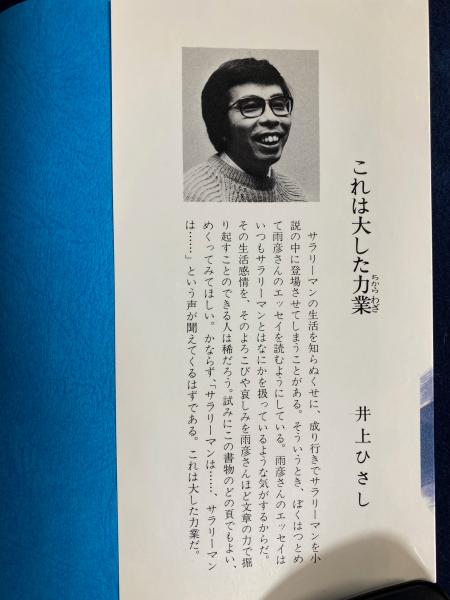 これは大した力業
ちからわざ
井上ひさし
サラリーマンの生活を知らぬくせに、成り行きでサラリーマンを小
説の中に登場させてしまうことがある。そういうとき、ぼくはつとめ
て雨彦さんのエッセイを読むようにしている。雨彦さんのエッセイは
いつもサラリーマンとはなにかを扱っているような気がするからだ。
その生活感情を、そのよろこびや哀しみを雨彦さんほど文章の力で掘
り起すことのできる人は稀だろう。試みにこの書物のどの頁でもよい、
めくってみてほしい。かならず、「サラリーマンは……、サラリーマン
は……」という声が聞えてくるはずである。これは大した力業だ。